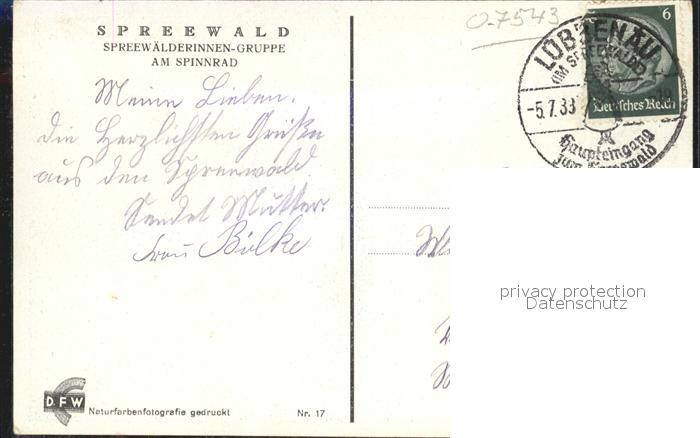 SPREEWALD
SPREEWÄLDERINNEN-GRUPPE
AM SPINNRAD
Meine Lieben.
die Herzlichsten Grüße
aus den Spreewald.
Sendet Mutter.
Frau Bölke
DFW
Naturfarbenfotografie gedruckt Nr. 17
O-7543
LÜBBENAU
(IM SPREEWALD)
-5.7.38
Haupteingang
zum Spreewald
6
Deutsches Reich
privacy protection
Datenschutz